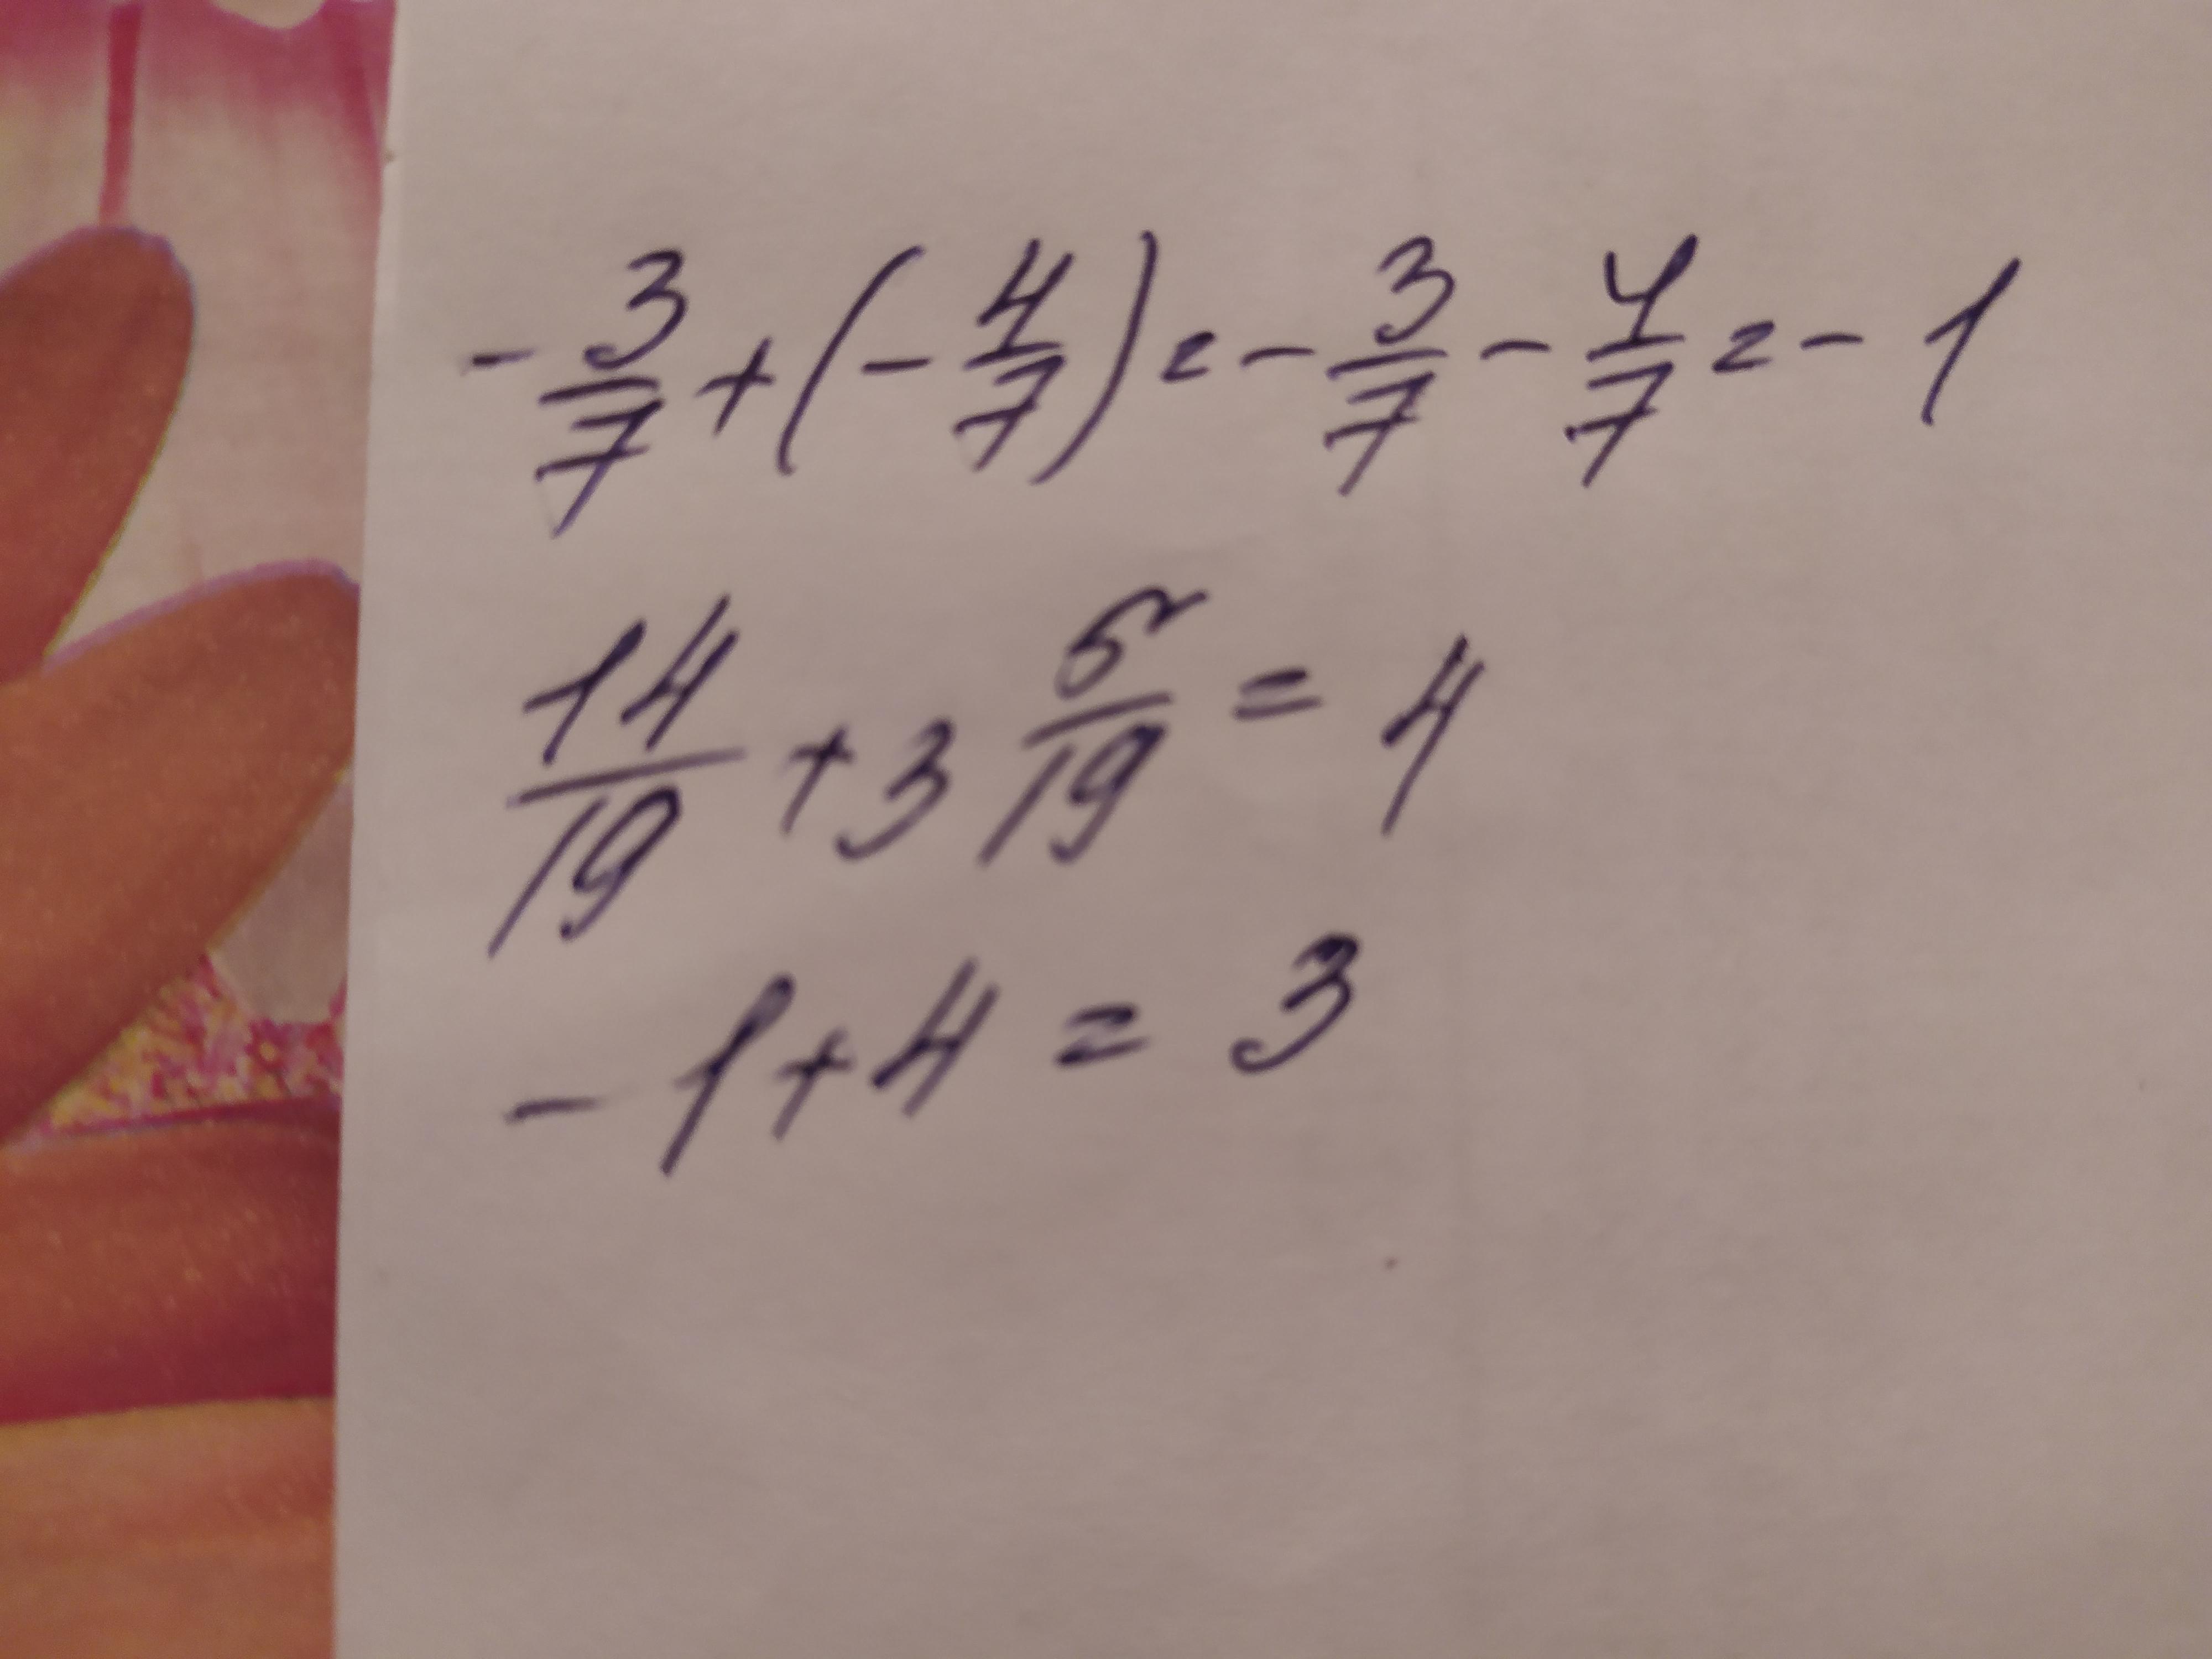 -3/7+(-4/7)=-3/7-4/7=-1
14/19+3 5/19=4
-1+4=3